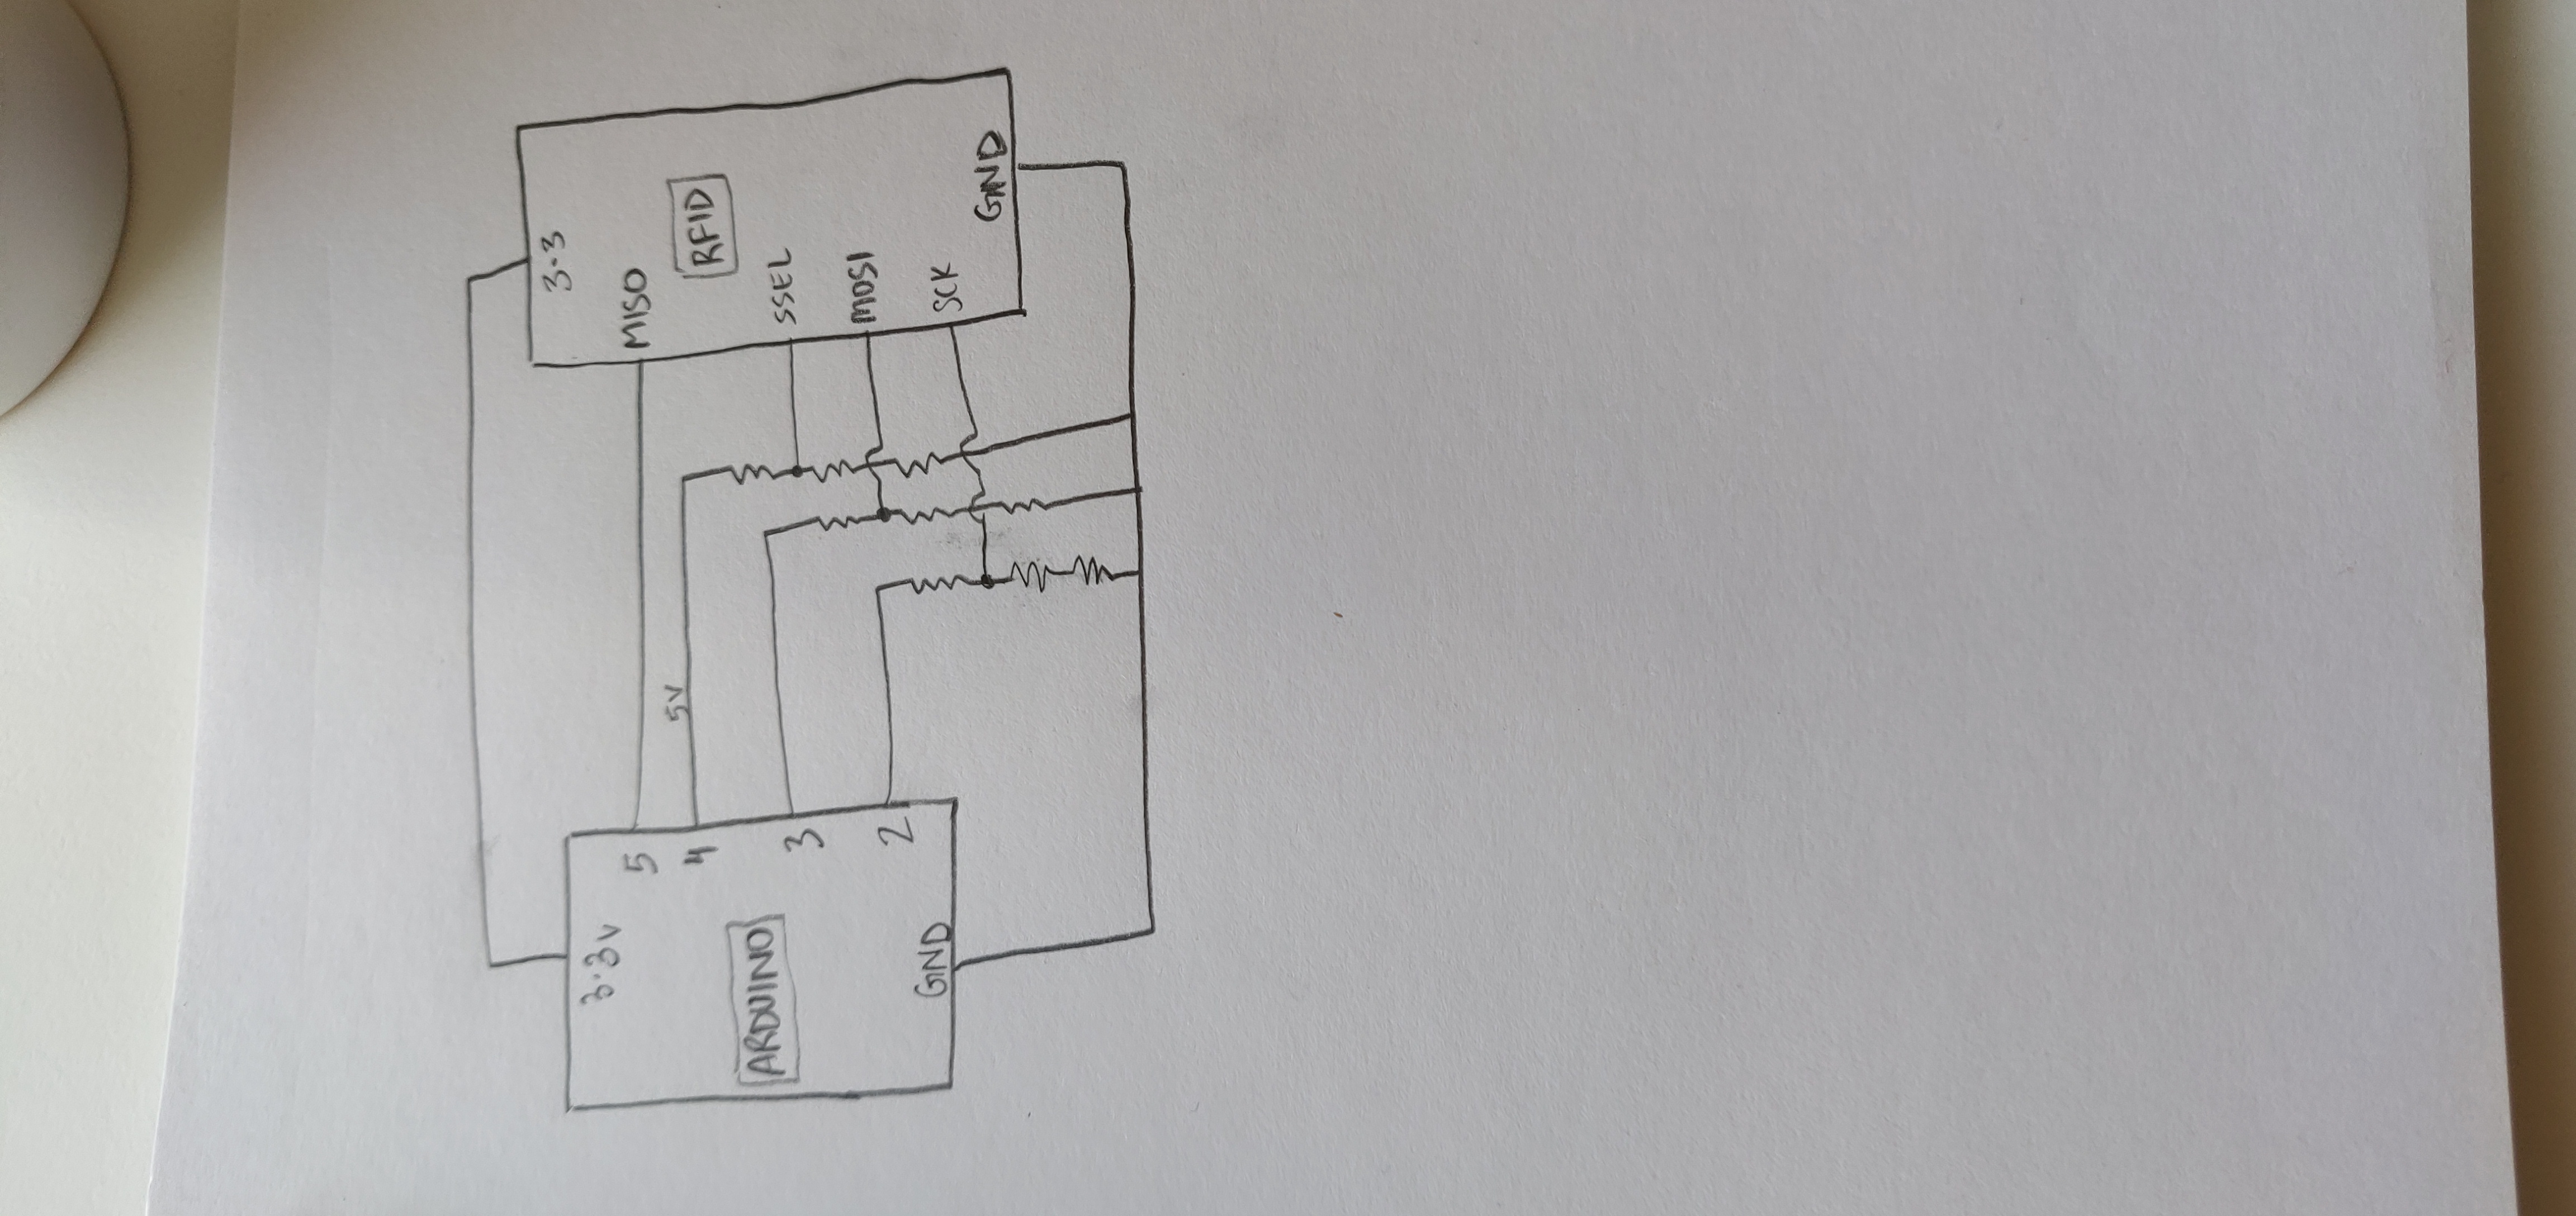 3.3v
5
4
5V
ARDUINO
3
2
GND
3.3
MISO
RFID
SSEL
MOSI
SCK
GND